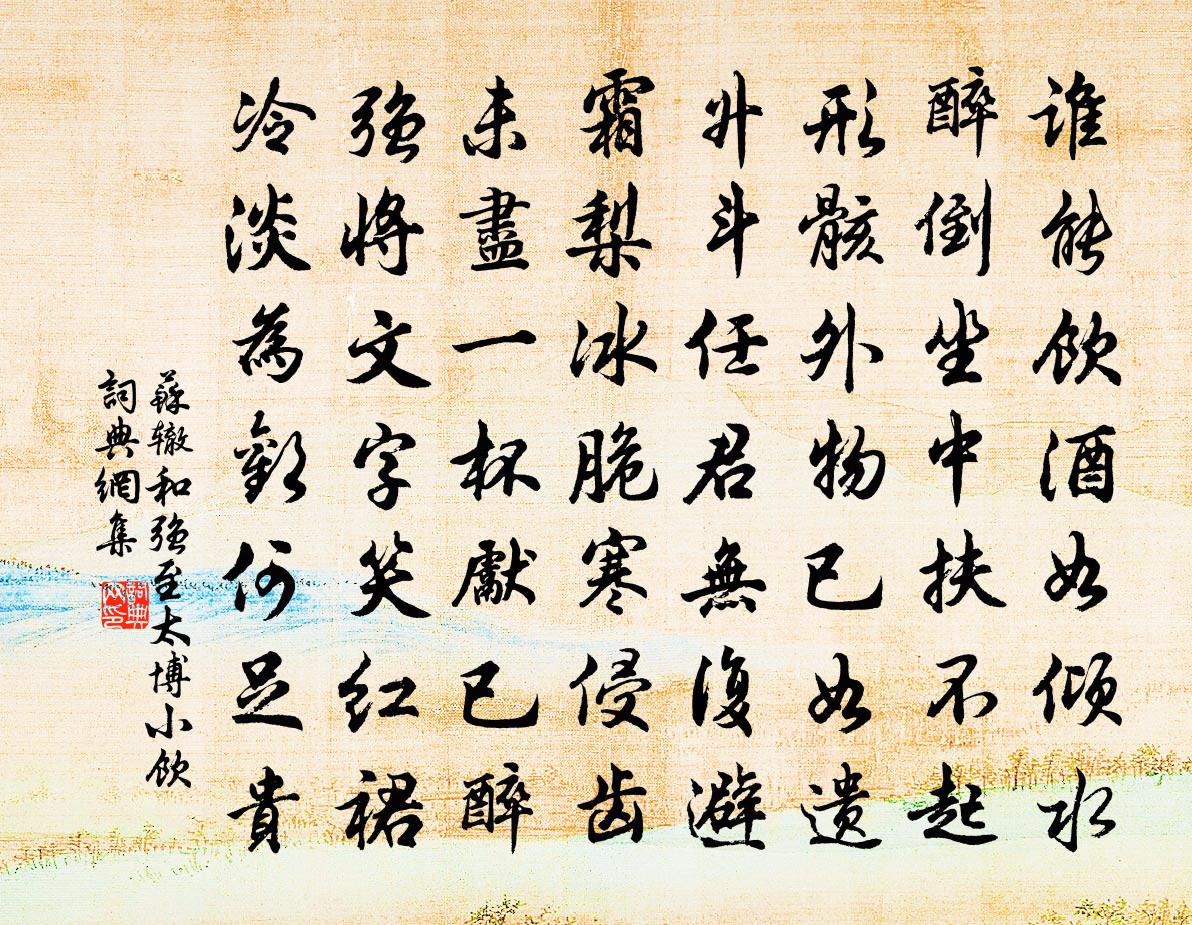 谁能饮酒如倾水
醉倒坐中扶不起
形骸外物已如遗
升斗任君無復避
霜梨冰脆寒侵齿
未盡一杯獻已醉
强将文字笑红裙
冷淡為歡何足貴
蘇辙和强至太博小飲
詞典網集
詞典